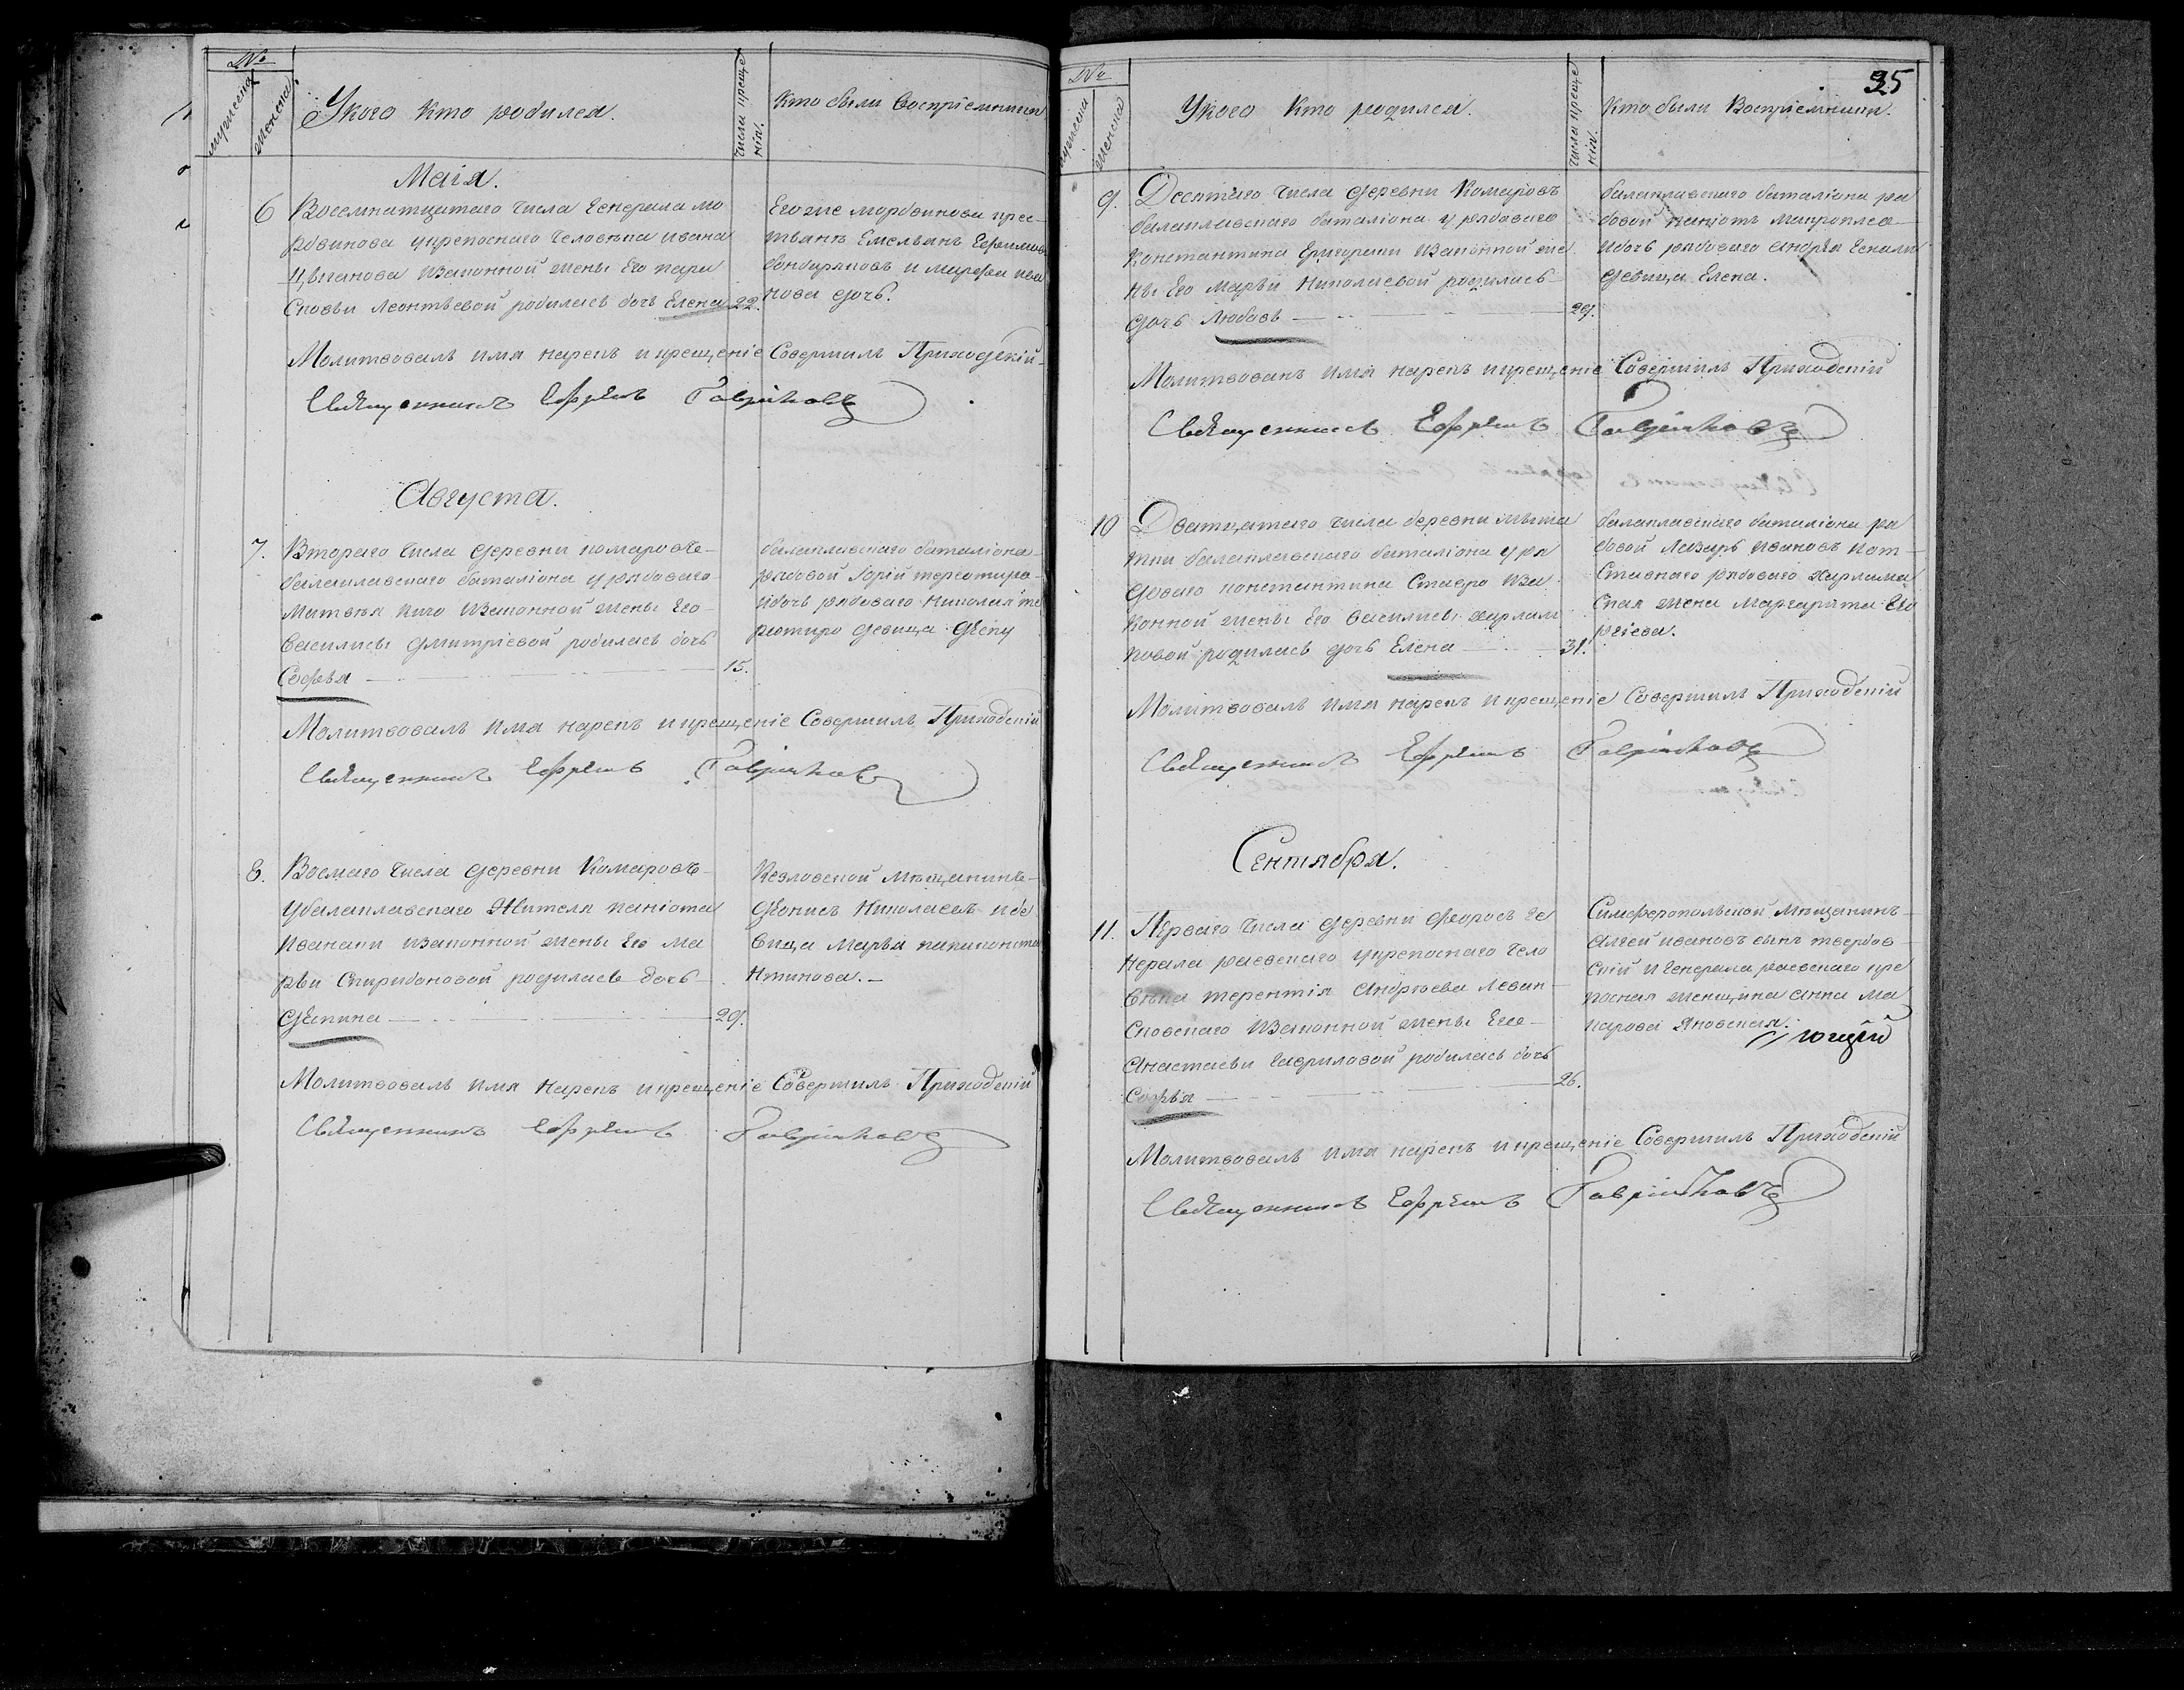 №
мужеска
женска
Укого Кто родился.
Числа креще
нія.
Кто были Воспріемники
Маія.
6 Восемнатцатаго числа Генерала мо
рдвинова укрепоснаго Человѣка ивана
Законной жены Его пара
сковьи Леонтьевой родилась дочь Елена 22.
Его же мордвинова крес
тьянъ Емельянъ
бондаряковъ и марфа ива
нова дочь.
Молитвовалъ имя нарекъ и крещеніе Совершилъ Приходскій
Священникъ Ефремъ Гавриковъ
Августа.
7. Втораго числа деревни комаровъ
балаклавскаго баталіона урядоваго
Матвея кичо Взаконной жены Его
Василисы дмитріевой родилась дочь
Софья 15.
балаклавскаго баталіона
рядовой
идочь рядоваго Николая те
девица
Молитвовалъ имя нарекъ и крещеніе Совершилъ Приходскій
Священникъ Ефремъ Гавриковъ
8. Восмаго числа деревни Комаровъ
Убалаклавскаго Жителя
Взаконной жены Его Ма
рьи Спиридоновой родилась дочь
29.
Козловской Мѣщанинъ
Николаевъ иде
вица Марья папаконста
нтинова.
Молитвовалъ имя Нарекъ и крещеніе Совершилъ Приходскій
Священникъ Ефремъ Гавриковъ
35
№
женска
Укого Кто родился.
Числа креще
нія.
Кто были Воспріемники.
9. Десятаго числа деревни Комаровъ
балаклавскаго баталіона урядоваго
Константина Григораки Взаконной же
ны Его Марьи Николаевой родилась
дочь Любовь 29.
балаклавскаго баталіона ря
довой
идочь рядоваго Андрея
девица Елена.
Молитвовалъ имя нарекъ и крещеніе Совершилъ Приходскій
Священникъ Ефремъ Гавриковъ
10 Дватцатаго числа деревни
балаклавскаго баталіона уря
доваго константина Ставро Вза
конной жены Его Василисы харлам
повой родилась дочь Елена 31.
балаклавскаго баталіона ря
довой Лазарь Ивановъ
рядоваго
жена Маргарита Ге
ргіева.
Молитвовалъ имя нарекъ и крещеніе Совершилъ Приходскій
Священникъ Ефремъ Гавриковъ
Сентября.
11. Перваго числа деревни форосъ ге
нерала раевскаго укрепоснаго чело
века терентія Андреева Леван
Взаконной жены Его
Анастасьи Гавриловой родилась дочь
Софья 26.
Симферопольской Мещанинъ
ивановъ сынъ твердов
скій и Генерала раевскаго кре
посная женщина Анна Ма
карова Яновская.
Молитвовалъ имя нарекъ и крещеніе Совершилъ Приходскій
Священникъ Ефремъ Гавриковъ